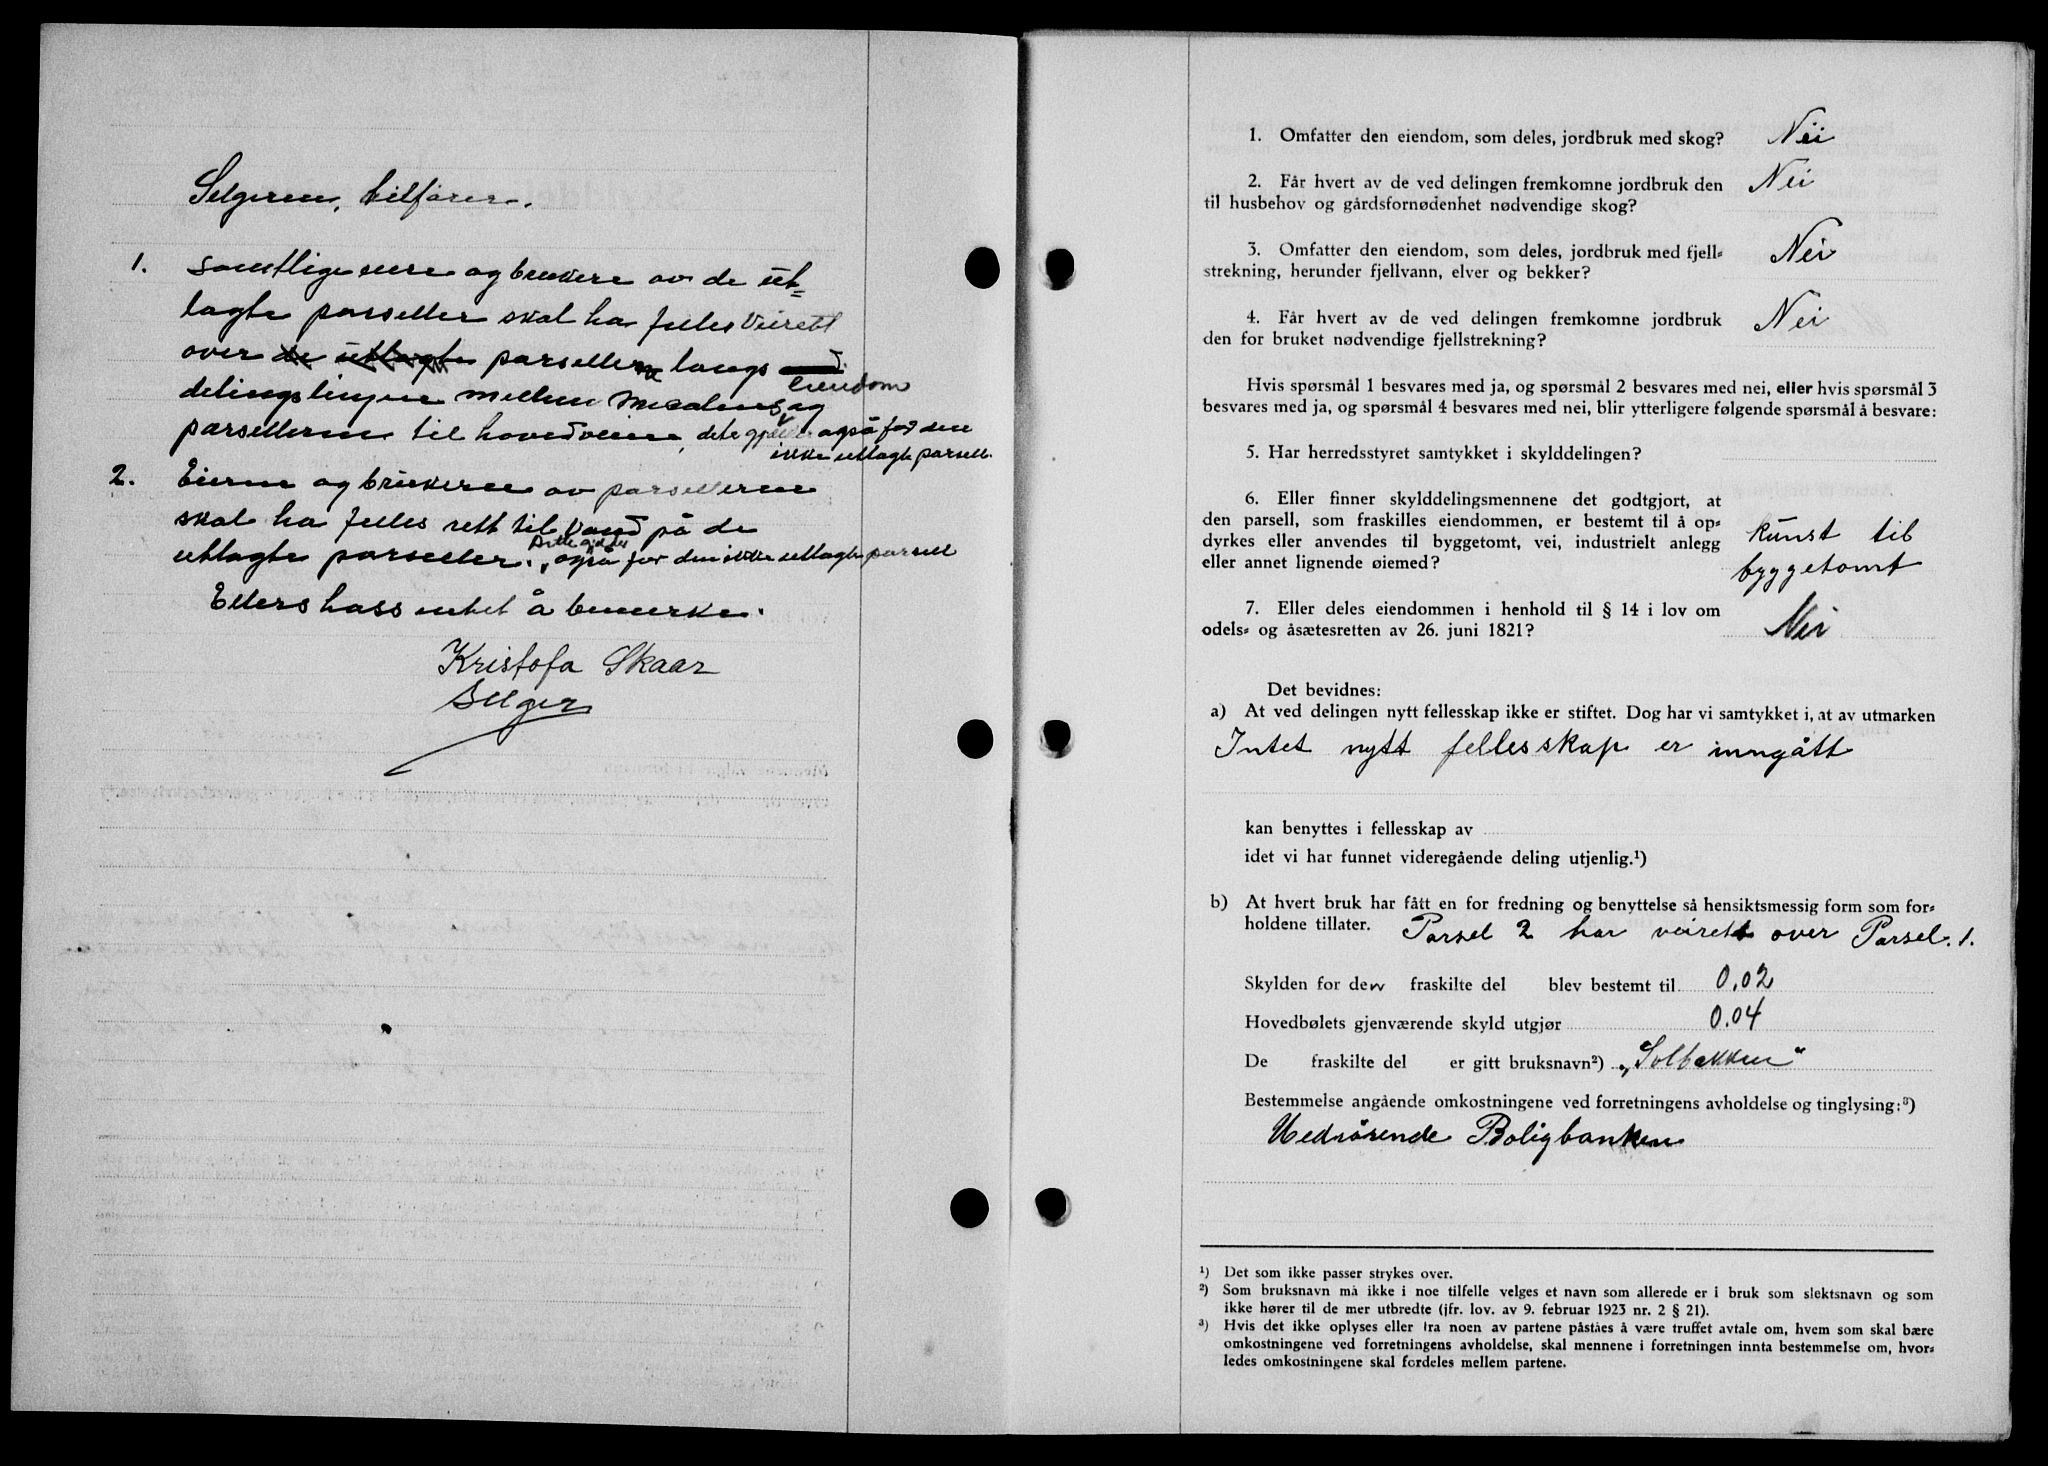 Selgeren, tilfører.
1. Samtlige eiere og brukere av de ut=
lagte parseller skal ha felles veirett
over de utlagte parsellerne langs
delingslinjen mellem eiendom og
parsellerne til hovedveien, dete gjelder også for den
ikke utlagte parsell.
2. Eierne og brukerne av parsellerne
skal ha felles rett til vand på de
utlagte parseller. Dette gjelder også for den ikke utlagte parsell
Ellers hass intet å bemerke.
Kristofa Skaar
Selger
1. Omfatter den eiendom, som deles, jordbruk med skog? Nei
2. Får hvert av de ved delingen fremkomne jordbruk den Nei
til husbehov og gårdsfornødenhet nødvendige skog?
3. Omfatter den eiendom, som deles, jordbruk med fjell= Nei
strekning, herunder fjellvann, elver og bekker?
4. Får hvert av de ved delingen fremkomne jordbruk Nei
den for bruket nødvendige fjellstrekning?
Hvis spørsmål 1 besvares med ja, og spørsmål 2 besvares med nei, eller hvis spørsmål 3
besvares med ja, og spørsmål 4 besvares med nei, blir ytterligere følgende spørsmål å besvare:
5. Har herredsstyret samtykket i skylddelingen?
6. Eller finner skylddelingsmennene det godtgjort, at
den parsell, som fraskilles eiendommen, er bestemt til å op=
dyrkes eller anvendes til byggetomt, vei, industrielt anlegg kunst til
eller annet lignende øiemed? byggetomt
7. Eller deles eiendommen i henhold til § 14 i lov om
odels= og åsætesretten av 26. juni 1821? Nei
Det bevidnes:
a) At ved delingen nytt fellesskap ikke er stiftet. Dog har vi samtykket i, at av utmarken
Intet nytt fellesskap er inngått
kan benyttes i fellesskap av
idet vi har funnet videregående deling utjenlig.¹)
b) At hvert bruk har fått en for fredning og benyttelse så hensiktsmessig form som for=
holdene tillater. Parsel 2 har veirett over Parsel. 1.
Skylden for den fraskilte del blev bestemt til 0,02
Hovedbølets gjenværende skyld utgjør 0.04
De fraskilte del er gitt bruksnavn²) „Solbakken“
Bestemmelse angående omkostningene ved forretningens avholdelse og tinglysing:³)
Vedrörende Boligbanken
¹) Det som ikke passer strykes over.
²) Som bruksnavn må ikke i noe tilfelle velges et navn som allerede er i bruk som slektsnavn og som
ikke hører til de mer utbredte (jfr. lov. av 9. februar 1923 nr. 2 § 21).
³) Hvis det ikke oplyses eller fra noen av partene påståes å være truffet avtale om, hvem som skal bære
omkostningene ved forretningens avholdelse, skal mennene i forretningen innta bestemmelse om, hvor=
ledes omkostningene skal fordeles mellem partene.